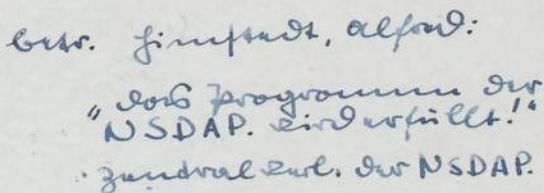 betr. Himstedt, Alfred:
"Das Programm der
NSDAP. wird erfüllt!"
. Zentralverl. der NSDAP.